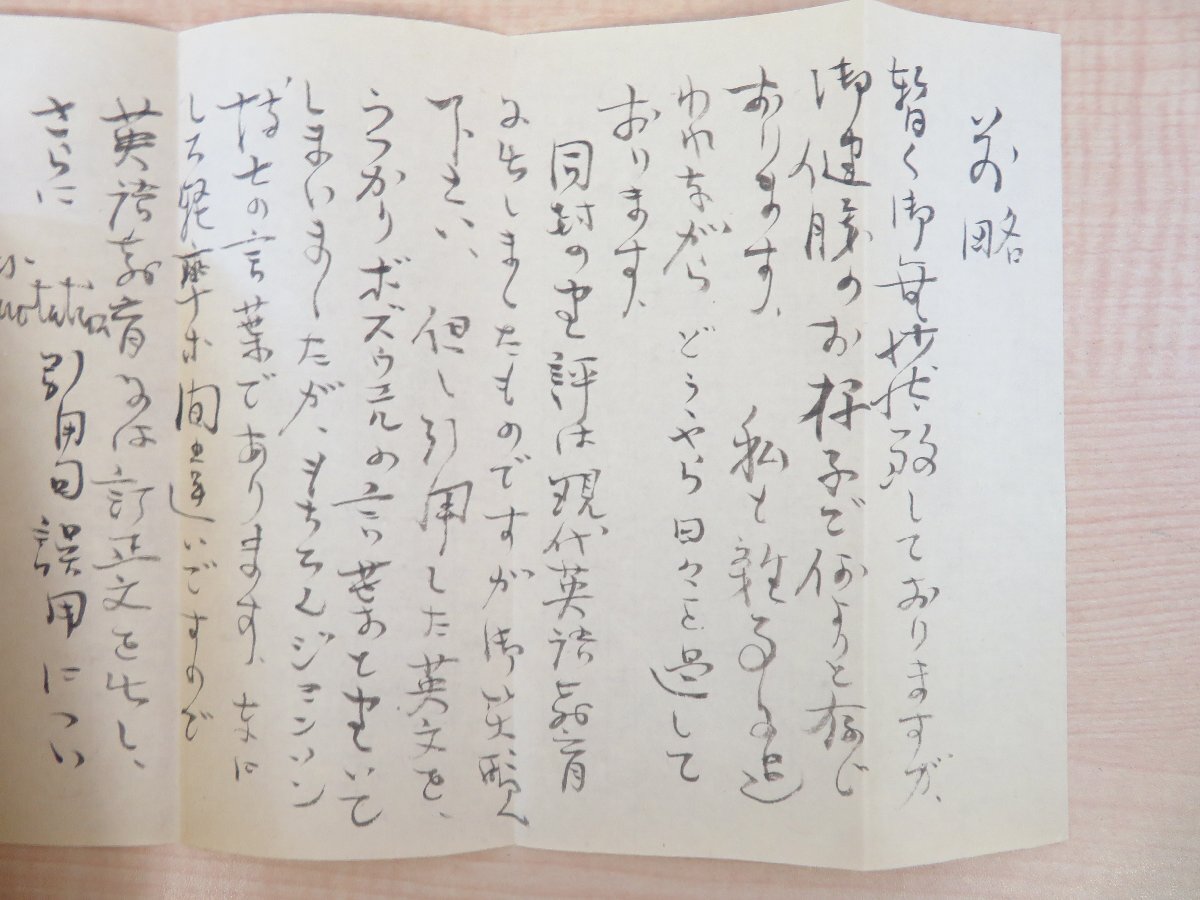 前略
暫く御無沙汰致しておりますが、
御健勝のお様子で何よりと存じ
おります、私も雑事に追
われながらどうやら日々を過して
おります、
同封の書評は現代英語教育
に出しましたものですが御笑覧
下さい、但し引用した英文を、
うっかりボズウェルの言葉と書いて
しまいましたが、もちろんジョンソン
博士の言葉であります、
した 間違いですので
英語教育には訂正文を出し、
さらに 引用句誤用につい